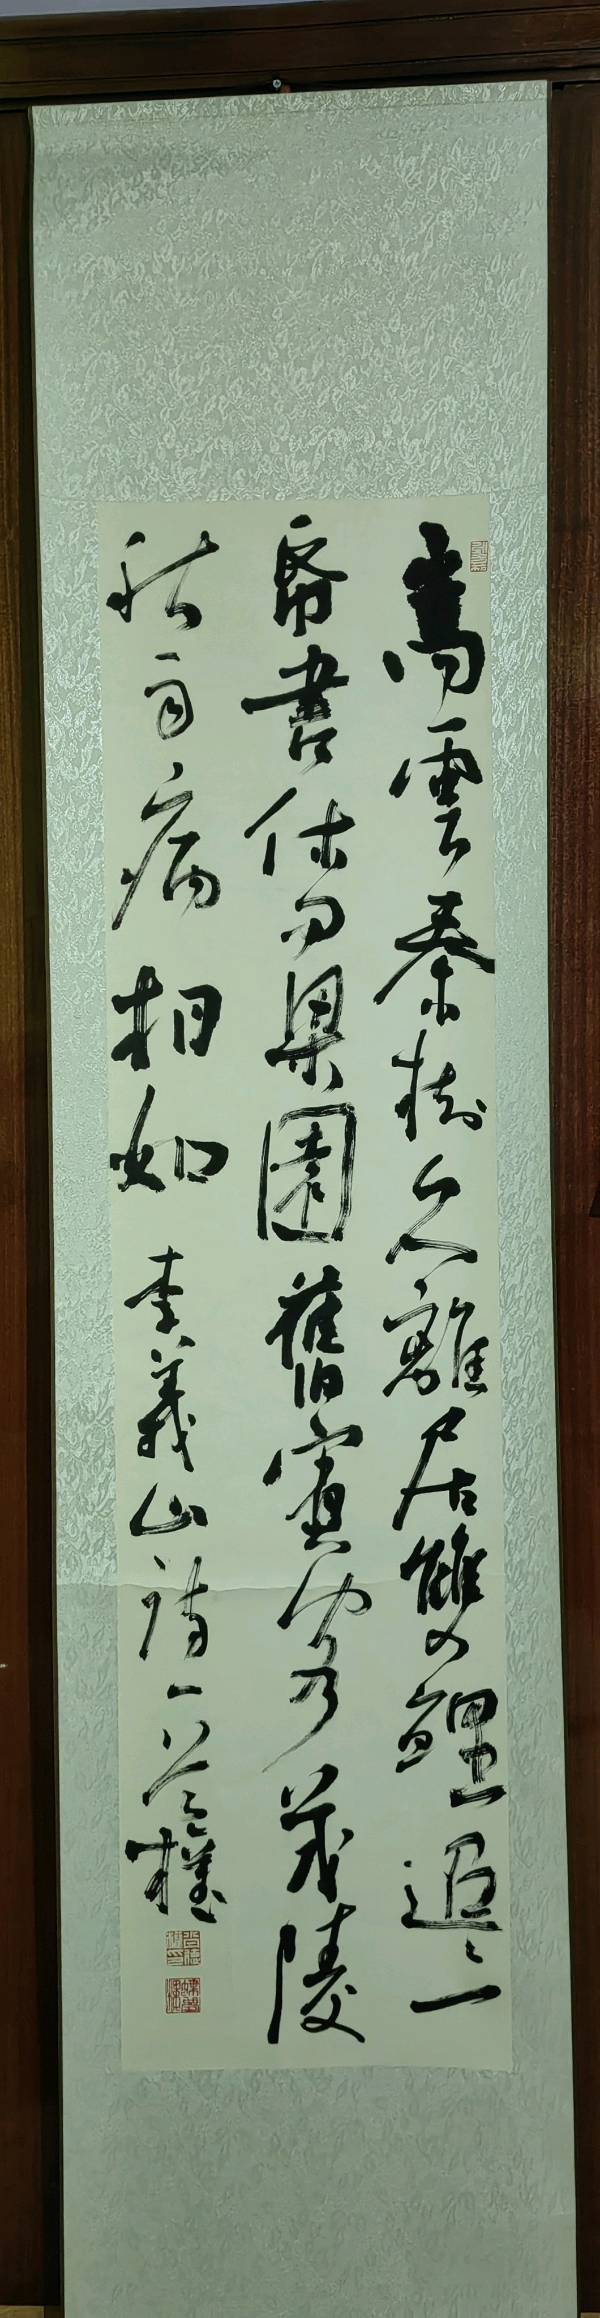 嵩雲秦樹久離居雙鯉迢々一
帋書休問梁園舊賓客茂陵
秋雨病相如 李義山詩一